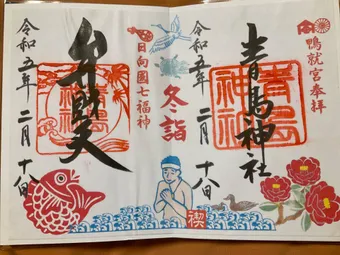 鴨就宮奉拝
青島神社
青島
神社
令和五年 二月 十八日
冬詣
禊
日向國七福神
弁財天
令和五年 二月 十八日